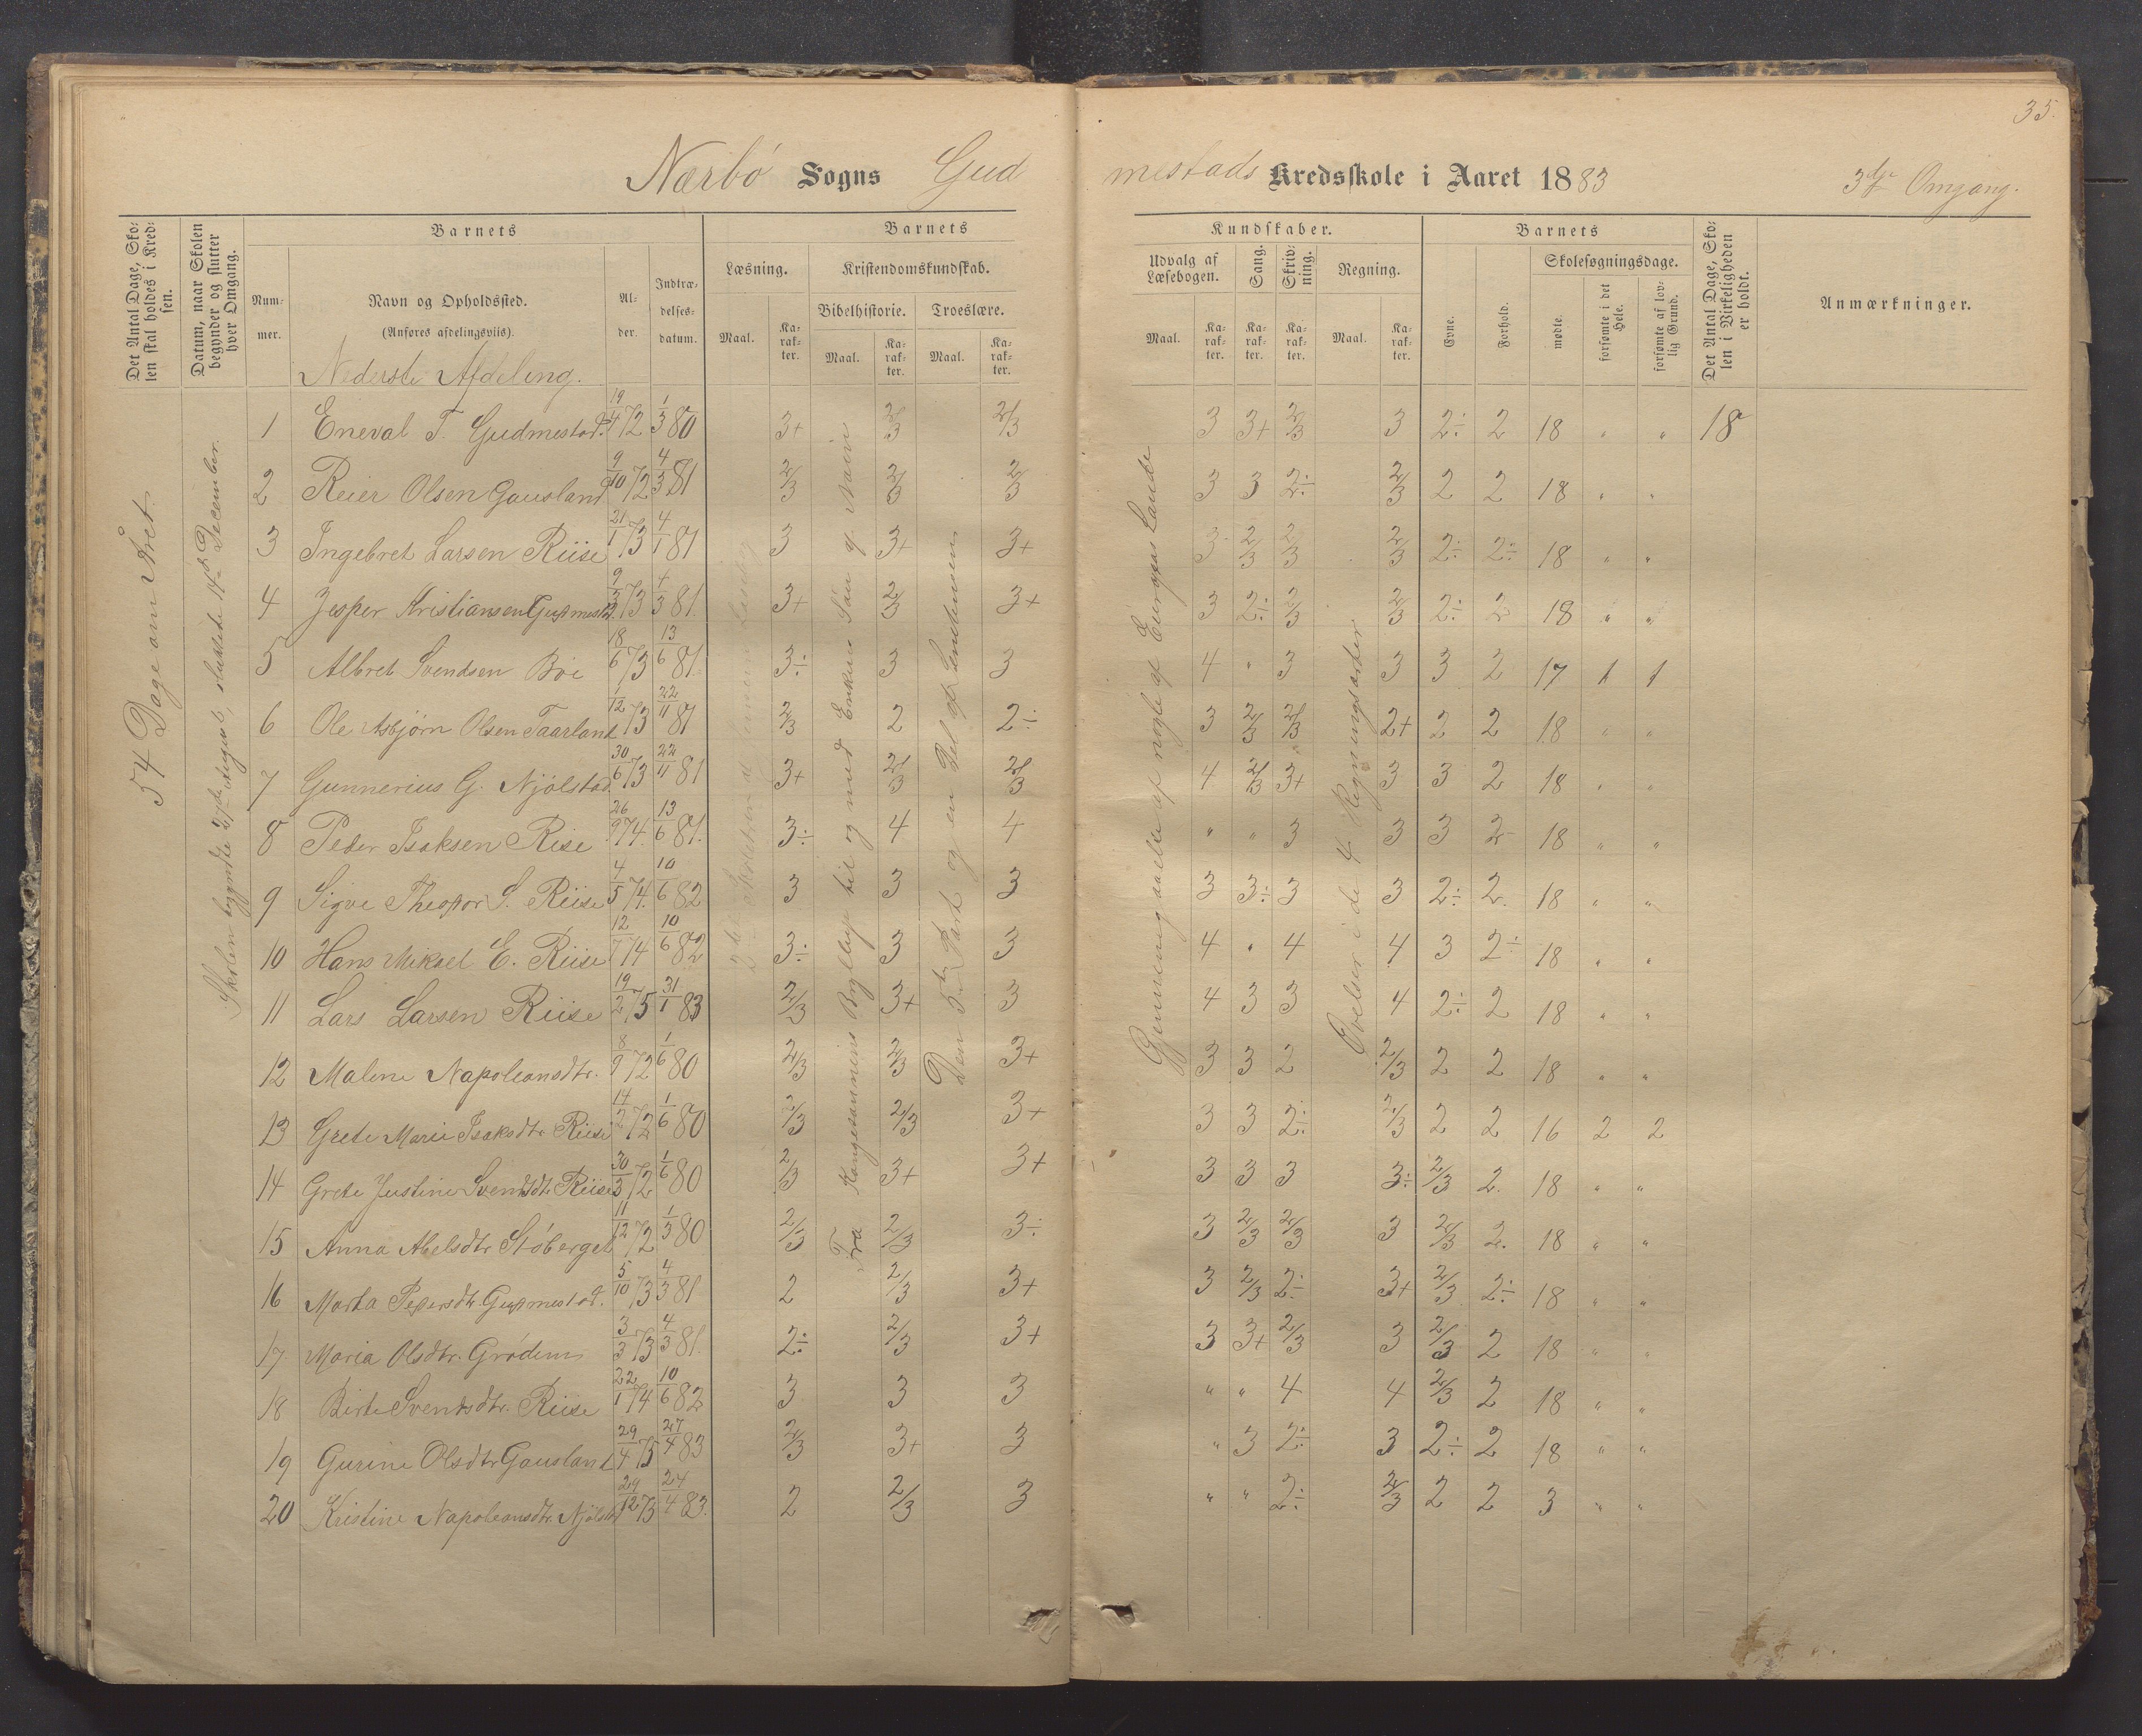 35.
Nærbö Sogns Gudmestads Kredsskole i Aaret 1883 3die Omgang.
Det Antal Dage, Skolen skal holdes i Kredsen.
Datum, naar Skolen begynder og slutter hver Omgang.
Barnets
Nummer.
Navn og Opholdssted.
(Anføres afdelingsviis).
Alder.
Indtrædelsesdatum.
Barnets Kundskaber.
Læsning.
Maal.
Karakter.
Kristendomskundskab.
Bibelhistorie.
Maal.
Karakter.
Troeslære.
Maal.
Karakter.
Udvalg af Læsebogen.
Maal.
Karakter.
Sang.
Karakter.
Skrivning.
Karakter.
Regning.
Maal.
Karakter.
Barnets
Evne.
Forhold.
Skolesøgningsdage.
mødte.
forsømte i det Hele.
forsømte af lovlig Grund.
Det Antal Dage, Skolen i Virkeligheden er holdt.
Anmærkninger.
Nederste Afdeling.
54 Dage om Året.
Skolen begyndte 27de August, sluttede 14de December.
Fra Kongesønnens Bryllup til og med Enkens Søn af Nain
Den 3die Part og en Del af
Gjennemgaaelse af nogle af Europas Lande
Øvelser i de 4 Regningsarter
1 Eneval T. Gudmestad. 19/4 72 1/3 80 3+ 2/3 2/3 3 3+ 2/3 3 2÷ 2 18 " " 18
2 Reier Olsen Gausland 9/10 72 4/3 81 2/3 2/3 2/3 3 3 2÷ 2/3 2 2 18 " "
3 Ingebret Larsen Riise 21/1 73 4/1 81 3 3+ 3+ 3 2/3 2/3 2/3 2÷ 2÷ 18 " "
4 Jesper Kristiansen Gudmestad 9/5 73 4/3 81. 3+ 2/3 3+ 3 2÷ 2/3 2/3 2÷ 2 18 " "
5 Albret Svendsen Böe 18/6 73 13/6 81. 3÷ 3 3 4 " 3 3 3 2 17 1 1
6 Ole Asbjørn Olsen Taarland 1/12 73 22/11 81 2/3 2 2÷ 3 2/3 2/3 2+ 2 2 18 " "
7 Gunnerius G. Njölstad. 30/6 73 22/11 81 3+ 2/3 2/3 4 2/3 3+ 3 3 2 18 " "
8 Peder Isaksen Riise 26/9 74. 13/6 81. 3÷ 4 4 " " 3 3 3 2 18 " "
9 Sigve Theodor S. Riise 4/5 74. 10/6 82 3 3 3 3 3÷ 3 3 2÷ 2. 18 " "
10 Hans Mikael E. Riise 12/7 74 10/6 82 3÷ 3 3 4 " 4 4 3 2÷ 18 " "
11 Lars Larsen Riise 19/2 75 31/1 83 2/3 3+ 3 4 3 3 4 2÷ 2 18 " "
12 Malene Napoleonsdtr. 8/9 72 1/6 80 2/3 2/3 3+ 3 3 2 2/3 2 2 18 " "
13 Grete Marie Isaksdtr Riise 14/2 72 1/6 80 2/3 2/3 3+ 3 3 2÷ 2/3 2 2 16 2 2
14 Grete Justine Svendsdtr Riise 30/3 72 1/6 80 2/3 3+ 3+ 3 3 3 3÷ 2/3 2. 18 " "
15 Anna Abelsdtr Stöberget 11/12 72 1/3 80 2/3 2/3 3÷ 3 2/3 2/3 3 2/3 2. 18 " "
16 Marta Pedersdtr. Gudmestad. 5/10 73 4/3 81 2 2/3 3+ 3 2/3 2÷ 3+ 2/3 2÷ 18 " "
17 Maria Olsdtr. Grödem 3/3 73 4/3 81. 2÷ 2/3 3+ 3 3+ 2/3 3 2/3 2 18 " "
18 Birte Svendsdtr. Riise 22/1 74 10/6 82 3 3 3 " " 4 4 2/3 2 18 " "
19 Gurine Olsdtr Gausland 29/4 75 27/4 83 2/3 3+ 3 " 3 2÷ 3 2÷ 2 18 " "
20 Kristine Napoleonsdtr. Njölst 24/12 73 24/4 83. 2 2/3 3 " " 2÷ 2/3 2 2 3 " "